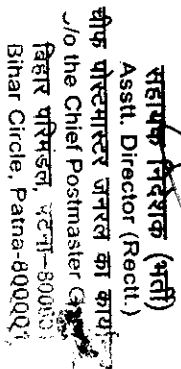 सहायक निदेशक (भर्ती)
Asstt. Director (Rectt.)
चीफ पोस्टमास्टर जनरल का कार्या
/o the Chief Postmaster G
बिहार परिमंडल, पटना-800001
Bihar Circle, Patna-800001